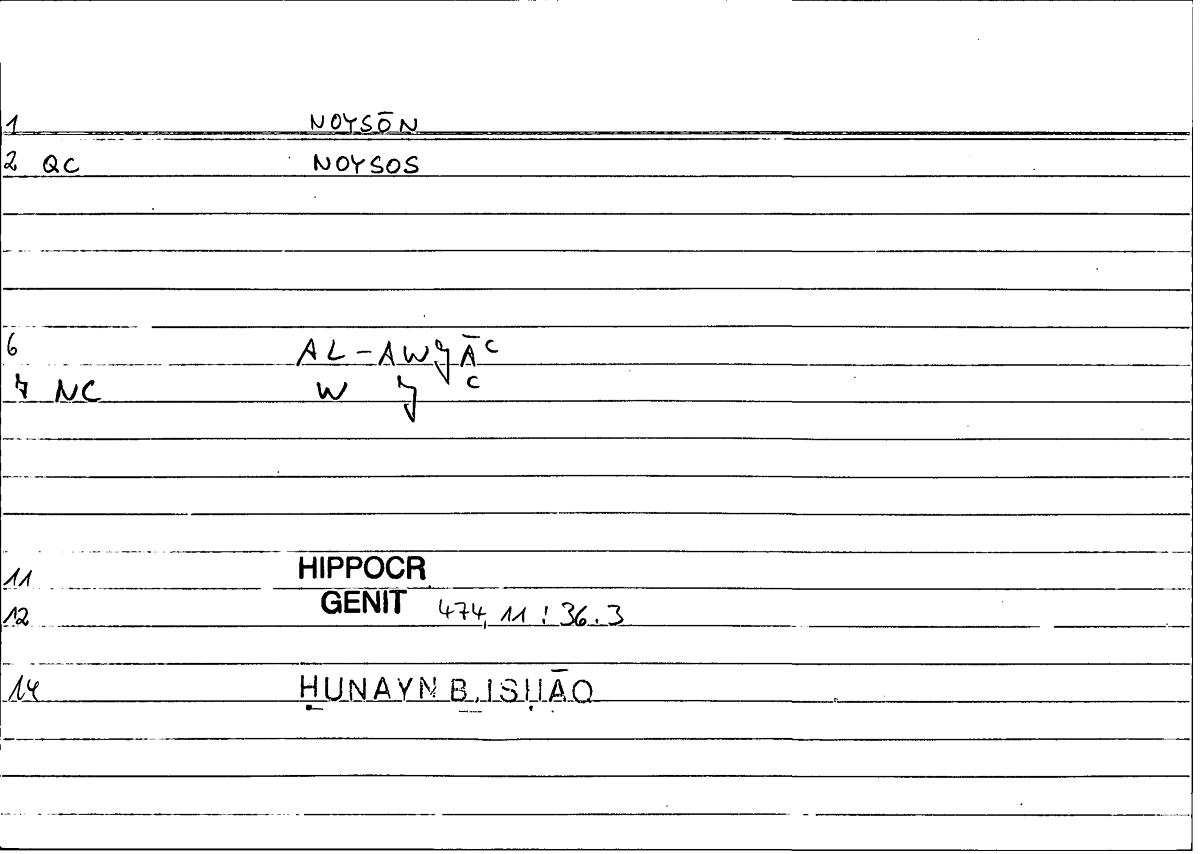 1 NOYSŌN
2 QC NOYSOS
6 AL-AWJĀᶜ
7 NC W J ᶜ
11 HIPPOCR
12 GENIT 474,11 : 36.3
14 ḤUNAYN B. ISḤĀQ